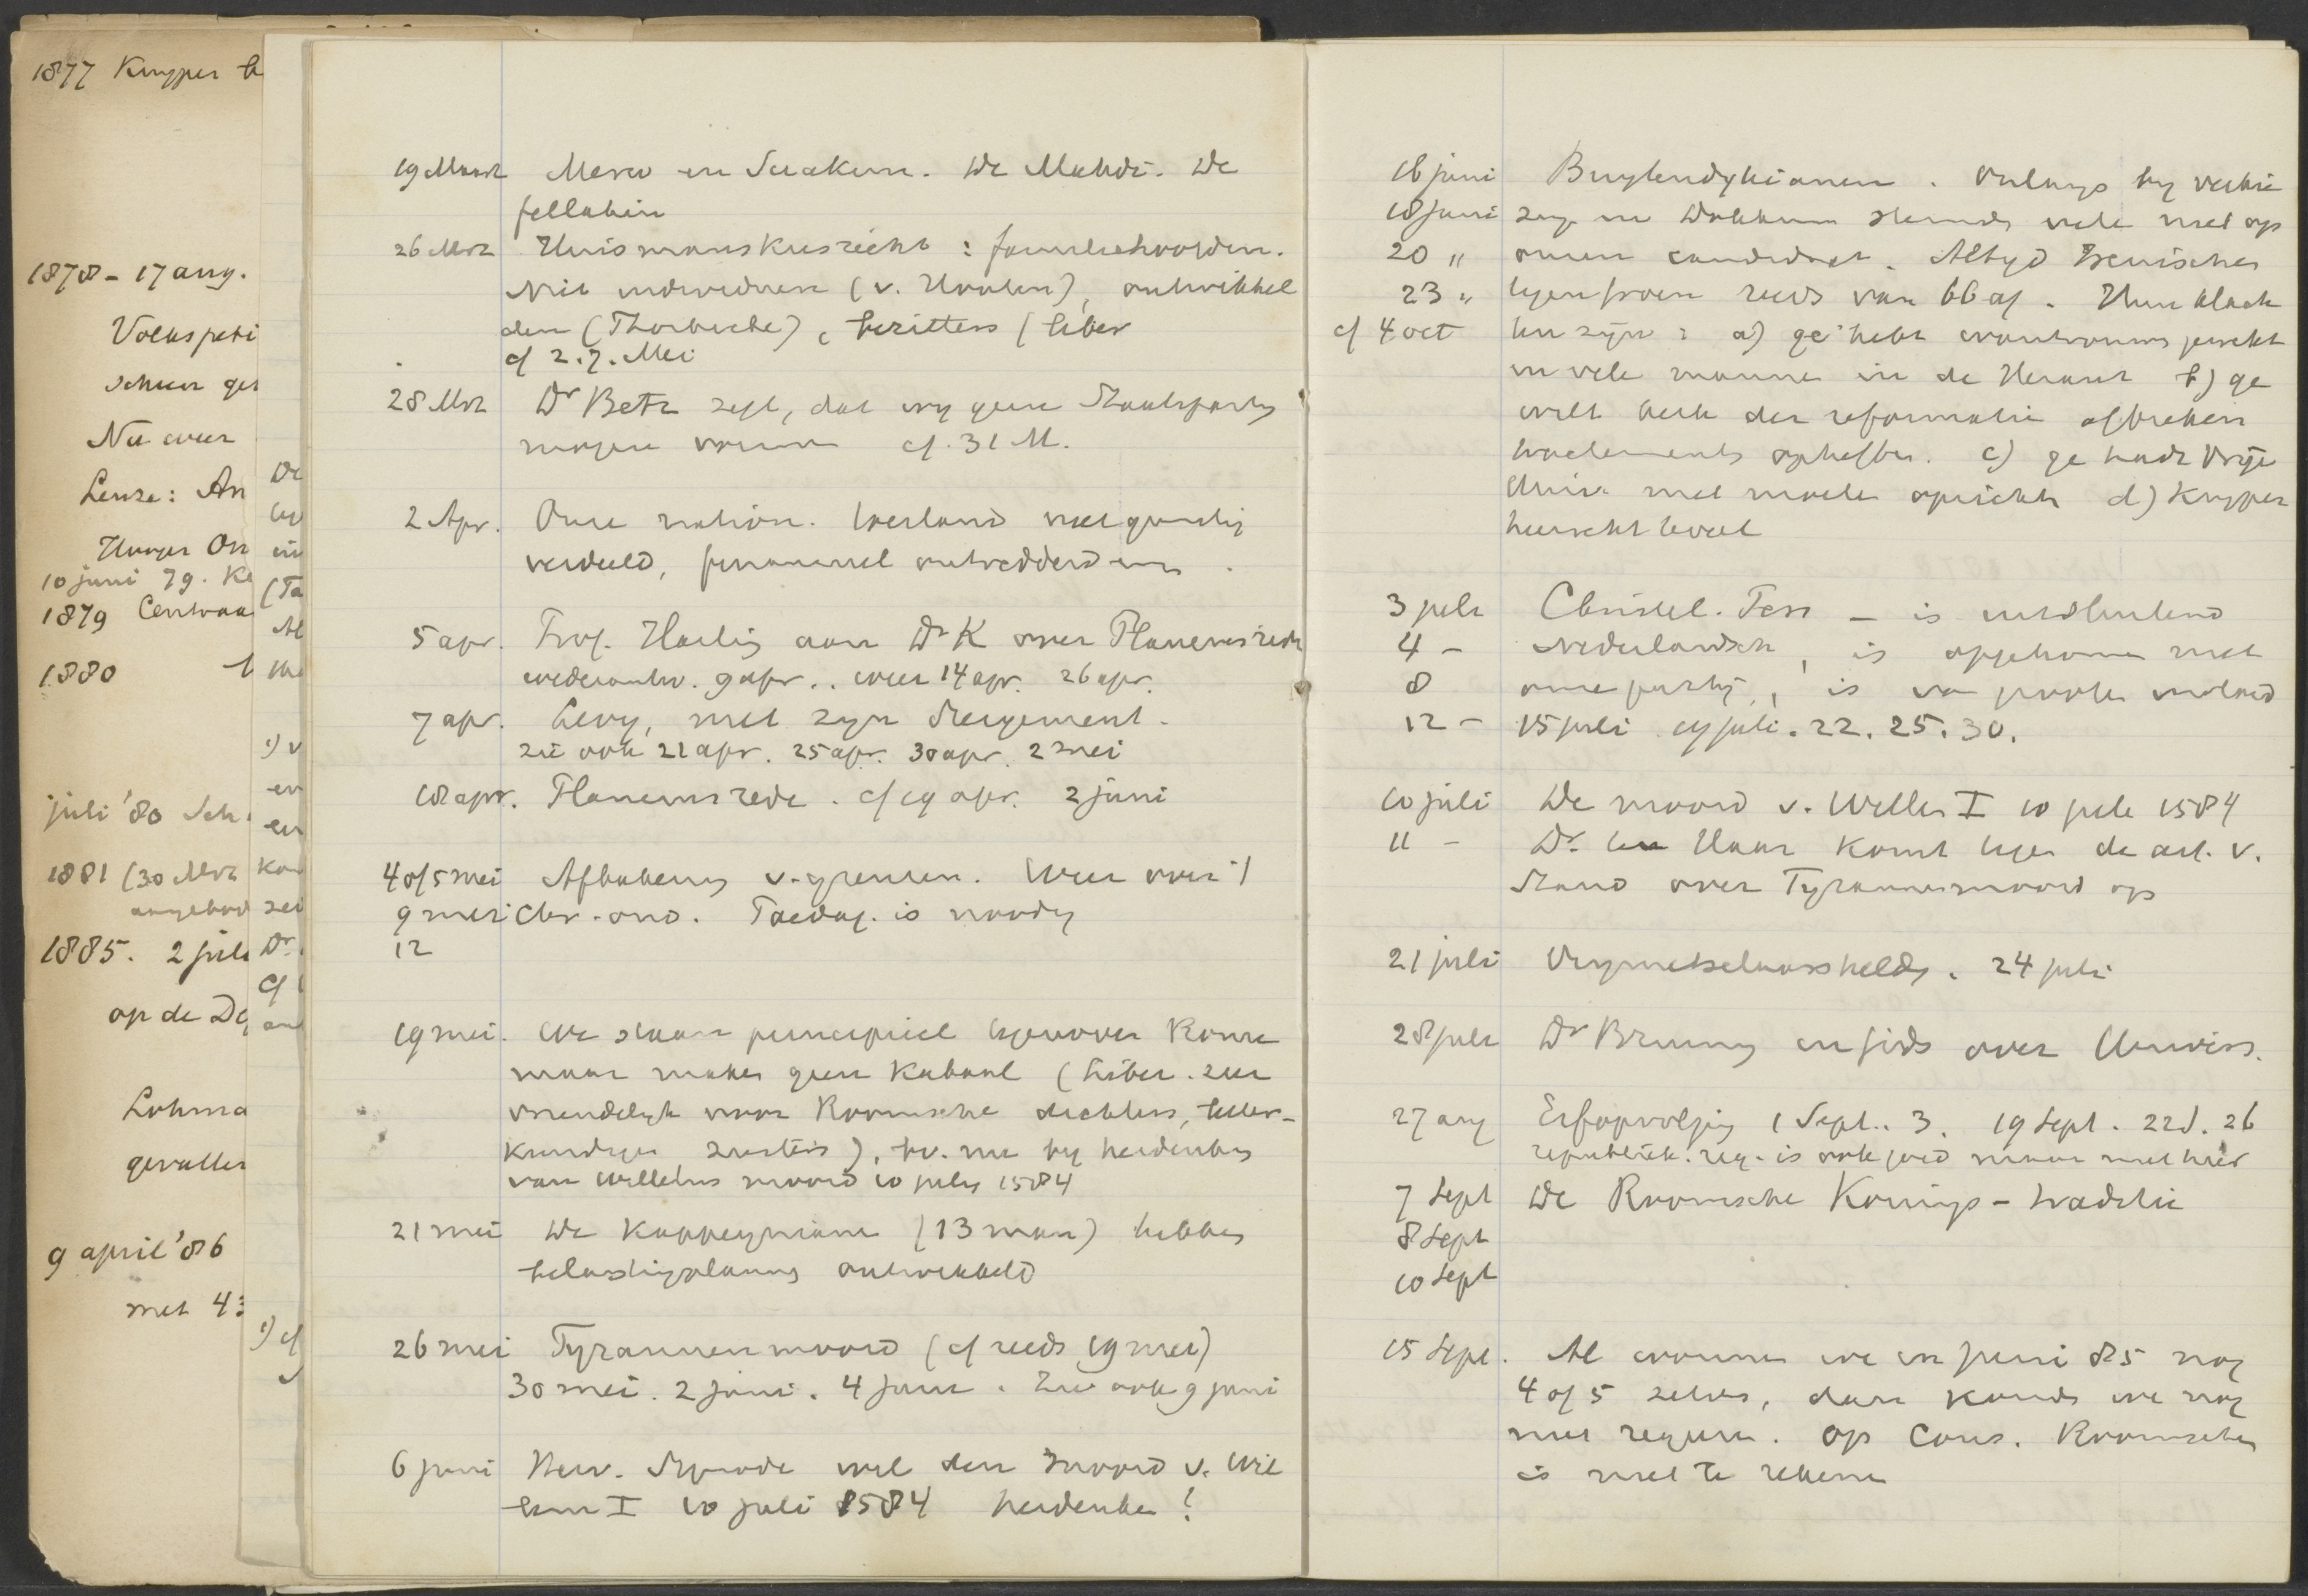 1877 Kuyper
1878 - 17 aug.
Volkspeti
Nu weer
Leuze: An
10 juni 79. Ke
1879 Centraa
1880
juli '80 Sch
1881 (30 Mrt
1885. 2 juli
op de
Lohma
gevallen
9 april '86
met 43
De
in
(Ta
Al
1) v
en
en
Dr.
cf
1) cf
19 Maart Merw en Suakim. De Mahdi. De
fellahin
26 Mrt Huismanskiesrecht: familiehoofden.
Niet individuen (v. Houten), ontwikkel
den (Thorbecke), bezitters (liber
cf 2. 7. Mei
28 Mrt Dr Betz zegt, dat wy geen Staatsparty
mogen vormen cf. 31 M.
2 Apr. Onze nation. toestand niet gunstig
verdeeld, financieel ontredderd enz.
5 apr. Prof. Harting aan Dr K over Flanensrede
wederantw. 9 apr.. weer 14 apr. 26 apr.
7 apr. Levy, met zyn
zie ook 21 apr. 25 apr. 30 apr. 2 mei
18 apr. rede. cf 19 apr. 2 juni
4 of 5 mei Afbakening v. grenzen. Weer over 't
9 mei Chr.-ond. is noodig
12
19 mei. We staan principieel tegenover Rome
maar maken geen kabaal (Liber. zeer
vriendelyk voor Roomsche dichters, letter-
kundigen zusters), bv. nu by herdenking
van Willems moord 10 july 1584
21 mei De Kappeynianen (13 man) hebben
belastingplannen ontwikkeld
26 mei Tyrannenmoord (cf reeds 19 mei)
30 mei. 2 juni. 4 juni. Zie ook 9 juni
6 juni Herv. Synode wil den moord v. Wil
lem I 10 juli 1584 herdenken!
16 juni Buytendykianen. Onlangs by verkie
18 juni zing in Dokkum stemden velen niet op
20 " onzen candidaat. Altyd Irenische
23 " tegenstroom reeds van 66 af. Hun klach
cf 4 oct ten zyn: a) ge hebt wantrouwen gewekt
in vele mannen in de Heraut b) ge
wilt kerk der reformatie afbreken
tractements opheffen. c) ge hadt Vrije
Univ. niet moeten oprichten d) Kuyper
heerscht teveel
3 juli Christel. - is uitsluitend
4 - Nederlandsch, is opgekomen met
8 onze partij, is
12 - 15 juli 19 juli. 22. 25. 30.
10 juli De moord v. Willem I 10 juli 1584
11 - Dr. ter Haar komt tegen de art. v.
Stand over Tyrannenmoord op
21 juli Vrymetselaarsheldy. 24 juli
28 juli Dr Bruining in gids over Univers.
27 aug Erfopvolging 1 Sept.. 3. 19 Sept. 22 S. 26
republiek. reg. is ook goed maar niet hier
7 Sept De Roomsche Konings-traditie
8 Sept
10 Sept
15 Sept. Al wonnen we in juni 85 nog
4 of 5 zetels, dan konden we nog
niet regeren. Op Cons. Roomschen
is niet te rekenen